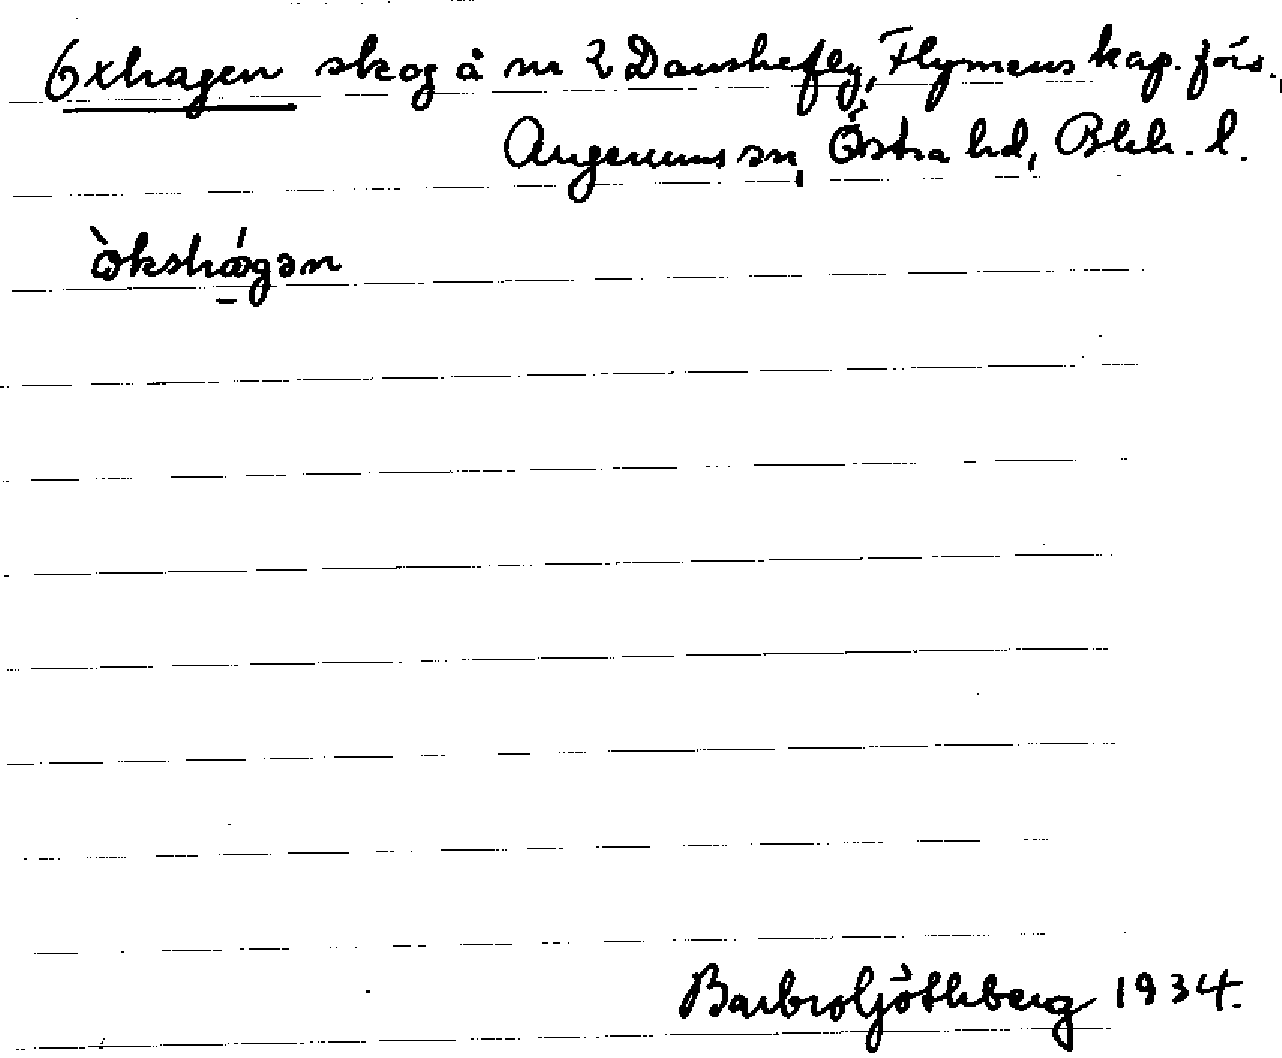 Oxhagen skog å nr 2 Danskefly, Flymens kap. förs.,
Augerums sn, Östra hd, Blek. l.
òkshágən
Barbro Göthberg 1934.